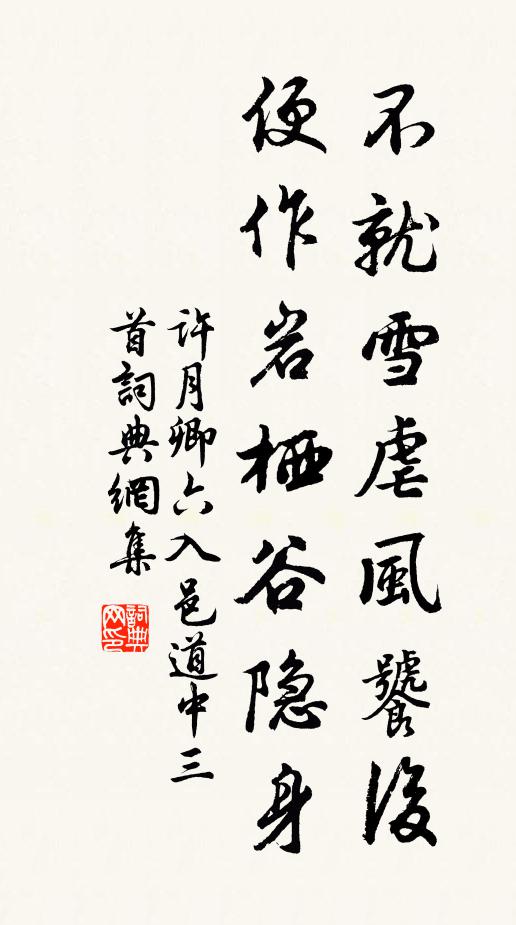 不就雪虐風饕後
便作岩栖谷隐身
許月卿六入邑道中三
首詞典網集
詞典
网印